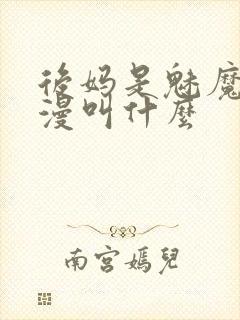 後妈是魅魔
漫叫什麼
南宮嫣兒